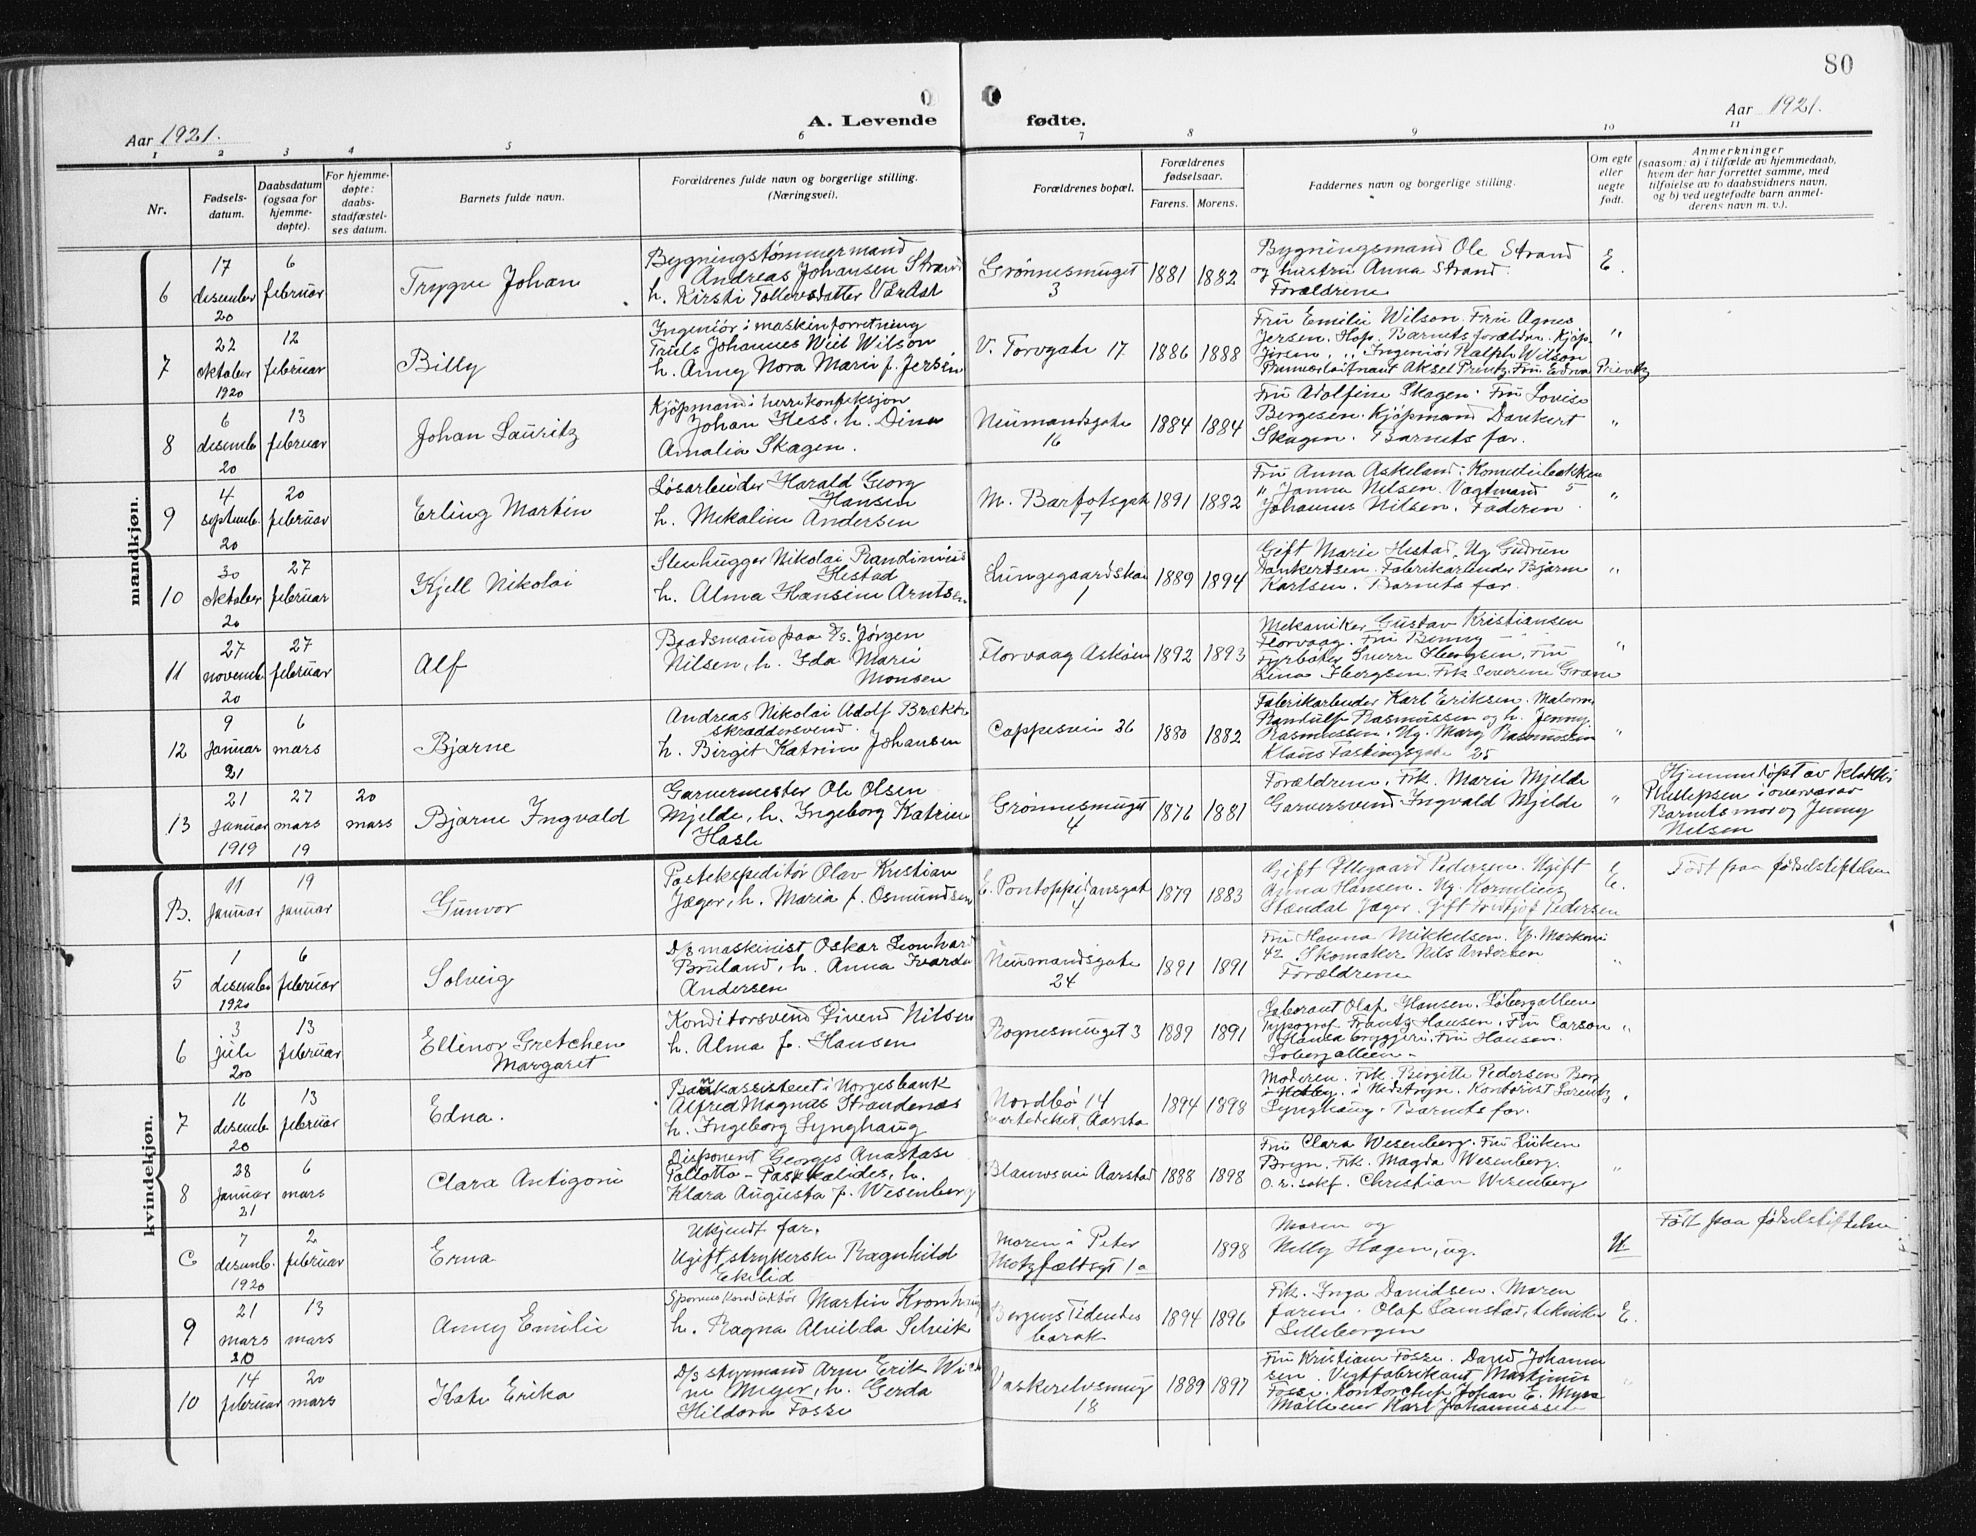 80
Aar 1921.
A. Levende
fødte.
Aar 1921.
1 2 3 4 5 6 7 8 9 10 11
Nr.
Fødsels-
datum.
Daabsdatum
(ogsaa for
hjemme-
døpte).
For hjemme-
døpte:
daabs-
stadfæstel-
ses datum.
Barnets fulde navn.
Forældrenes fulde navn og borgerlige stilling.
(Næringsvei).
Forældrenes bopæl.
Forældrenes
fødselsaar.
Farens. Morens.
Faddernes navn og borgerlige stilling.
Om egte
eller
uegte
født.
Anmerkninger
(saasom: a) i tilfælde av hjemmedaab,
hvem der har forrettet samme, med
tilføielse av to daabsvidners navn,
og b) ved uegtefødte barn anmel-
derens navn m. v.).
mandkjøn.
6
17
desember
20
6
februar
Trygve Johan
Bygningstømmermand
Andreas Johansen Strand
h. Kirsti Tollevsdatter Vårdal
Grønnesmuget
3
1881 1882
Bygningsmand Ole Strand
og hustru Anna Strand.
Forældrene
E.
7
22
oktober
1920
12
februar
Billy
Ingeniør i maskinforretning
Truls Johannes Wiel Wilson
h. Anny Nora Marie f. Jersin
V. Torvgate 17
1886 1888
Fru Emilie Wilson. Fru Agnes
Jersen. Hop. Barnets forældre. Kjøp.
Jersen. " Ingeniør Ralph Wilson
Premierløitnant Aksel Printz. Fru Edna
"
8
6
desemb.
20
13
februar
Johan Lauritz
Kjøpmand i herrekonfeksjon
Johan Hess. h. Dina
Amalia Skagen.
Neumandsgate
16
1884 1884
Fru Adolfine Skagen. Fru Lovise
Bergesen. Kjøpmand Dankert
Skagen. Barnets far.
"
9
4
septemb.
20
20
februar
Erling Martin
Løsarbeider Harald Georg
Hansen
h. Mekaline Andersen
M. Barfotsgate
7
1891 1882
Fru Anna Askeland. Komediebakken
" Janna Nilsen. Vægtmand 5
Johannes Nilsen. Faderen.
"
10
30
oktober
20
27
februar
Kjell Nikolai
Stenhugger Nikolai
Hestad
h. Alma Hansine Arntsen
Lungegaardskai
1
1889 1894
Gift Marie Hestad. Ug. Gudrun
Dankertsen. Fabrikarbeider Bjarne
Karlsen. Barnets far.
"
11
27
novemb.
20
27
februar
Alf
Baadsmann paa D/s. Jørgen
Nilsen, h. Ida Marie
Monsen
Florvaag Askøen
1892 1893
Mekaniker Gustav Kristiansen
Florvaag. Fru Benny
Fyrbøter Sverre Hergsen. Fru
Lina Hergsen. Frk Severine Gram
"
12
9
januar
21
6
mars
Bjarne
Andreas Nikolai Adolf Brække
skræddersvend.
h. Birgit Katrine Johansen
Cappesvei 26
1880 1882
Fabrikarbeider Karl Eriksen. Malerm.
Randulf Rasmussen og h. Jenny
Rasmussen. Ug. Mary Rasmussen
Klaus Fastingsgate 25
"
13
21
januar
1919
27
mars
19
20
mars
Bjarne Ingvald
Garvermester Ole Olsen
Mjelde, h. Ingeborg Katrine
Hasle
Grønnesmuget
4
1876 1881
Forældrene. Frk. Marie Mjelde
Garversvend Ingvald Mjelde
"
Hjemmedøpt av klokker
Phillipsen i overvær av
Barnets mor og Jenny
Nilsen
kvindekjøn.
B.
11
januar
19
januar
Gunvor
Postekspeditør Olav Kristian
Jæger, h. Maria f. Osmundsen
E. Pontoppidansgate
4
1879 1883
Gift Ellegaard Pedersen. Ugift
Anna Hansen. Ug. Kornelius
Stændal Jæger. Gift Fridtjof Pedersen
E.
Født paa fødselstiftelsen
5
1
desember
1920
6
februar
Solveig
D/s maskinist Oskar Leonhard
Bruland, h. Anna Ivarda
Andersen
Neumandsgate
24
1891 1891
Fru Hanna Mikkelsen.
42. Skomaker Nils Andersen
Forældrene
"
6
3
juli
20
13
februar
Ellinor Gretchen
Margaret
Konditorsvend Eivend Nilsen
h. Alma f. Hansen
Rognesmuget 3
1889 1891
Laborant Olaf Hansen. Løbergalleen
Typograf Frantz Hansen. Fru Carson
Hansa bryggeri. Fru Hansen.
Løbergalleen.
"
7
16
desemb.
20
13
februar
Edna.
Bankassistent i Norges bank
Alfred Magnus Strandenæs
h. Ingeborg Lynghaug
Nordbø 14
Svartediket, Aarstad
1894 1898
Moderen. Frk. Birgitte Pedersen Berg
Kontorist Lorentz
Lynghaug. Barnets far.
"
8
28
januar
21
6
mars
Clara Antigoni
Disponent Georges Anastase
Pallotto - Paskalides, h.
Klara Augusta f. Wesenberg
Blauwsvei Aarstad
1888 1898
Fru Clara Wesenberg. Fru Lüken
Bryn. Frk. Magda Wesenberg.
O.r. sakf. Christian Wesenberg
"
C
7
desemb.
1920
2
februar
Erna
Ukjendt far.
Ugift strykerske Ragnhild
Ekelid
Moren i Peter
Motzfældtsgt 1a
1898
Moren og
Nelly Hagen, ug.
U.
Født paa fødselstiftelsen
9
21
mars
20
13
mars
Anny Emilie
Sporveiskonduktør Martin Kronhaug
h. Ragna Alvilda Selvik
Bergens Tidendes
barak
1894 1896
Frk. Inga Danielsen. Moren
faren. Olaf Samstad, tekniker
Lilleborgen
E.
10
14
februar
20
mars
Kate Erika
D/s styrmand Arne Erik
Meyer, h. Gerda
Hildora Fosse
Vaskerelvsmug
18
1889 1897
Fru Kristiane Fosse. David Johanne
sen. Vegtfabrikant Martinus
Fosse. Kontorchef Johan E. Myre
Karl Johannessen
"